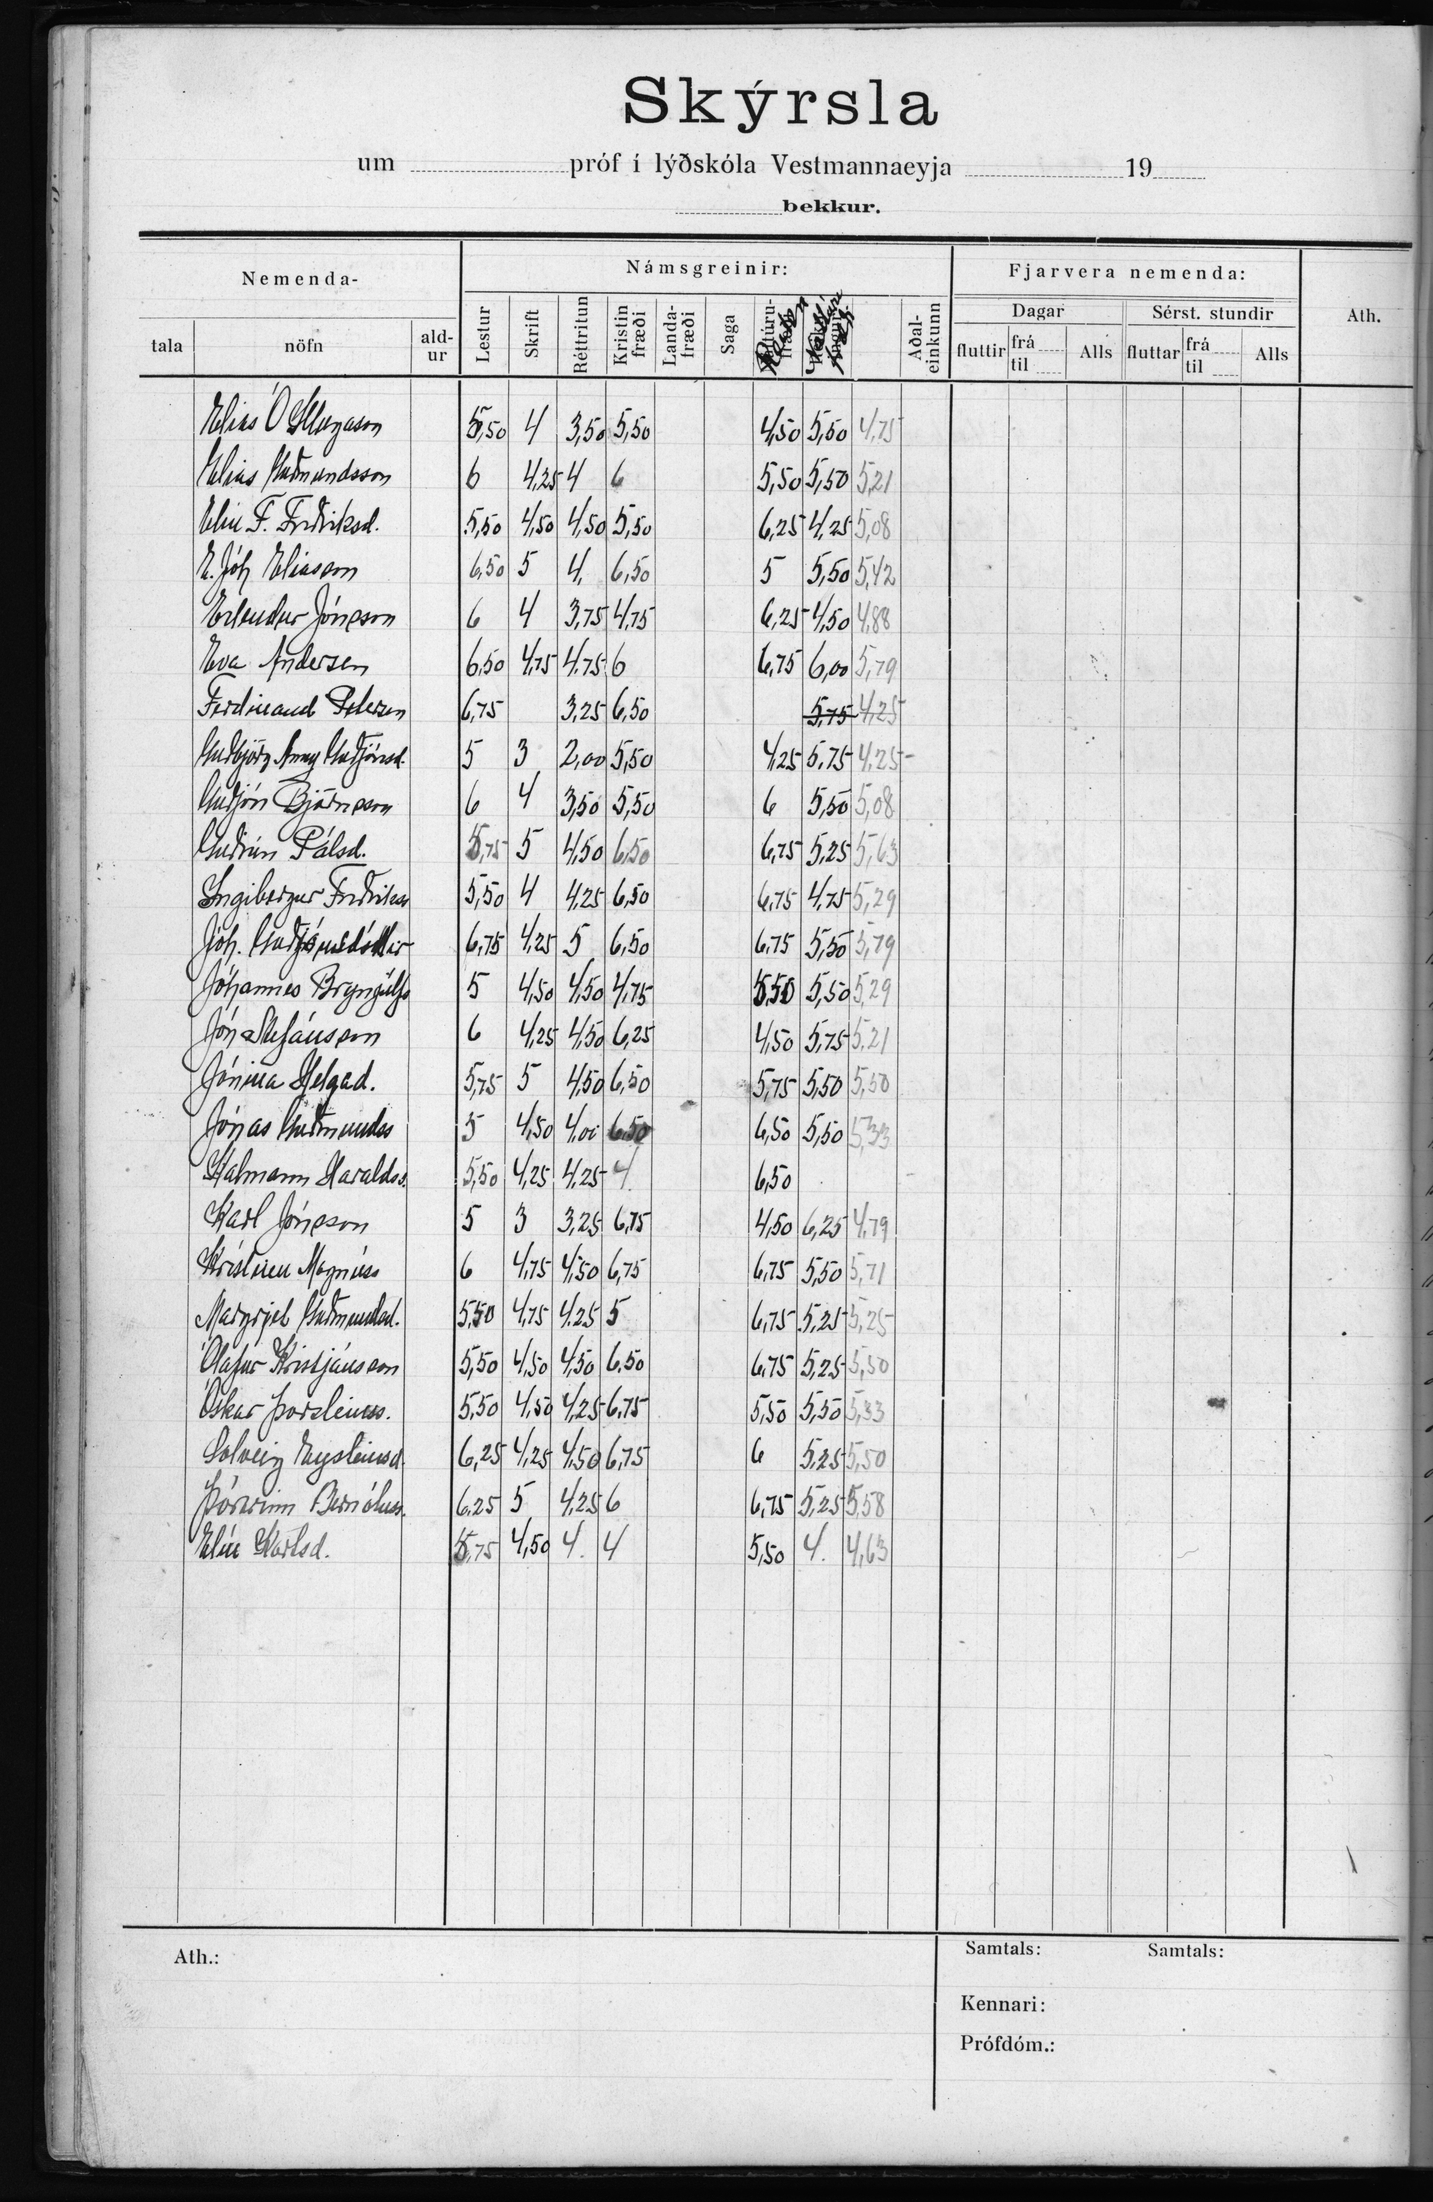 Skýrsla
um próf í lýðskóla Vestmannaeyja 19
bekkur.
Nemenda- Námsgreinir: Fjarvera nemenda: Ath.
tala nöfn ald-ur Lestur Skrift Réttritun Kristin fræði Landa-fræði Saga Aðal-einkunn Dagar Sérst. stundir
fluttir frá til Alls fluttar frá til Alls
Elias Ó Illugason 5,50 4 3,50 5,50 4,50 5,50 4,75
Elias Guðmundsson 6 4,25 4 6 5,50 5,50 5,21
Elin F. Friðriksd. 5,50 4,50 4,50 5,50 6,25 4,25 5,08
E. Jóh Eliasson 6,50 5 4, 6,50 5 5,50 5,42
Erlendur Jónsson 6 4 3,75 4,75 6,25 4,50 4,88
Eva Andersen 6,50 4,75 4,75 6 6,75 6,00 5,79
Ferdinand Petersen 6,75 3,25 6,50 5,75 4,25
Guðbjörg Anny Guðjónsd. 5 3 2,00 5,50 4,25 5,75 4,25-
Guðjón Björnsson 6 4 3,50 5,50 6 5,50 5,08
Guðrún Pálsd. 5,75 5 4,50 6,50 6,75 5,25 5,63
Ingibergur Friðrikss 5,50 4 4,25 6,50 6,75 4,75 5,29
Jóh. Guðjónsdóttir 6,75 4,25 5 6,50 6,75 5,50 5,79
Jóhannes Brynjúlfs 5 4,50 4,50 4,75 5,50 5,50 5,29
Jón Stefánsson 6 4,25 4,50 6,25 4,50 5,75 5,21
Jónina Helgad. 5,75 5 4,50 6,50 5,75 5,50 5,50
Jónas Guðmundss 5 4,50 4,00 6,50 6,50 5,50 5,33
Kalmann Haraldss. 5,50 4,25 4,25 4 6,50
Karl Jónsson 5 3 3,25 6,75 4,50 6,25 4,79
Kristinn Magnúss 6 4,75 4,50 6,75 6,75 5,50 5,71
Margrjet Guðmundsd. 5,50 4,75 4,25 5 6,75 5,25 5,25
Ólafur Kristjánsson 5,50 4,50 4,50 6,50 6,75 5,25 5,50
Óskar Þorsteinss. 5,50 4,50 4,25 6,75 5,50 5,50 5,33
Solveig Eysteinsd. 6,25 4,25 4,50 6,75 6 5,25 5,50
Þórarinn Bernótuss. 6,25 5 4,25 6 6,75 5,25 5,58
Elín Karlsd. 5,75 4,50 4. 4 5,50 4. 4,63
Ath.: Samtals: Samtals:
Kennari:
Prófdóm.: